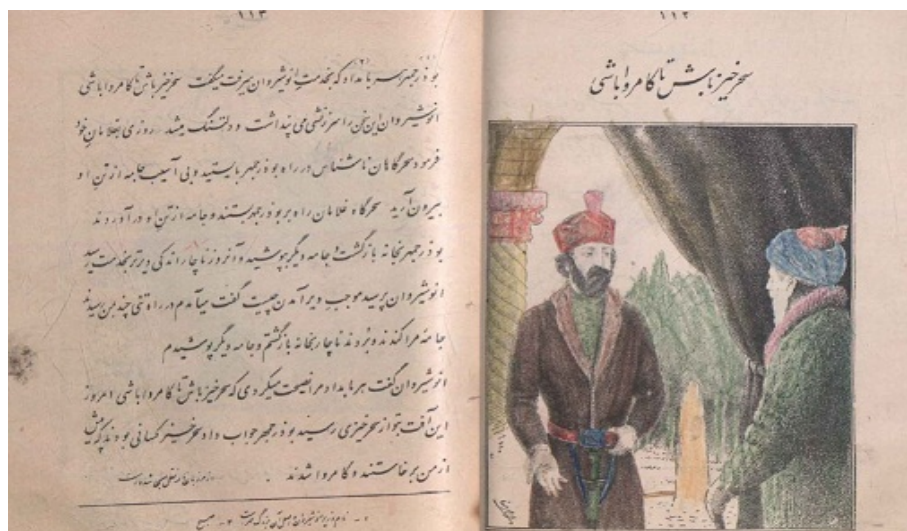 ۱۱۲
سحرخیز باش تا کامروا باشی
۱۱۳
بوذرجمهر هر بامداد که بخدمت انوشیروان میرفت میگفت سحرخیز باش تا کامروا باشی
انوشیروان این سخن را سرزنشی می پنداشت و دلتنگ میشد روزی بغلامان خود
فرمود سحرگاهان ناشناس در راه بوذرجمهر بایستید و بی آسیب جامه از تن او
بیرون آرید سحرگاه غلامان راه بر بوذرجمهر بستند و جامه از تن او در آوردند
بوذرجمهر بخانه بازگشت و جامه دیگر بپوشید و آنروز ناچار اندکی دیرتر بخدمت رسید
انوشیروان پرسید موجب دیر آمدن چیست گفت میآمدم در راه تنی چند بمن رسیدند
جامه مرا کندند و بردند ناچار بخانه بازگشتم و جامه دیگر پوشیدم
انوشیروان گفت هر بامداد مرا نصیحت میکردی که سحرخیز باش تا کامروا باشی امروز
این آفت بتو از سحرخیزی رسید بوذرجمهر جواب داد سحرخیز کسانی بودند که پیش
از من برخاستند و کامروا شدند